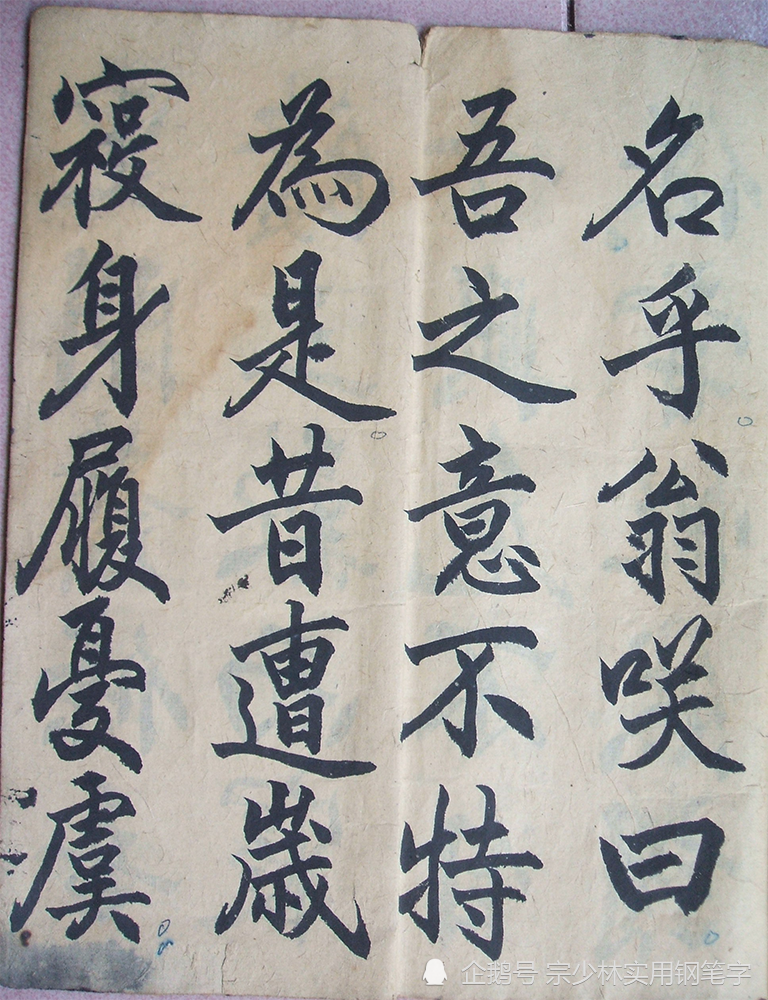 名乎翁咲曰
吾之意不特
為是昔遭歳
祲身履憂虞
企鹅号 宗少林实用钢笔字